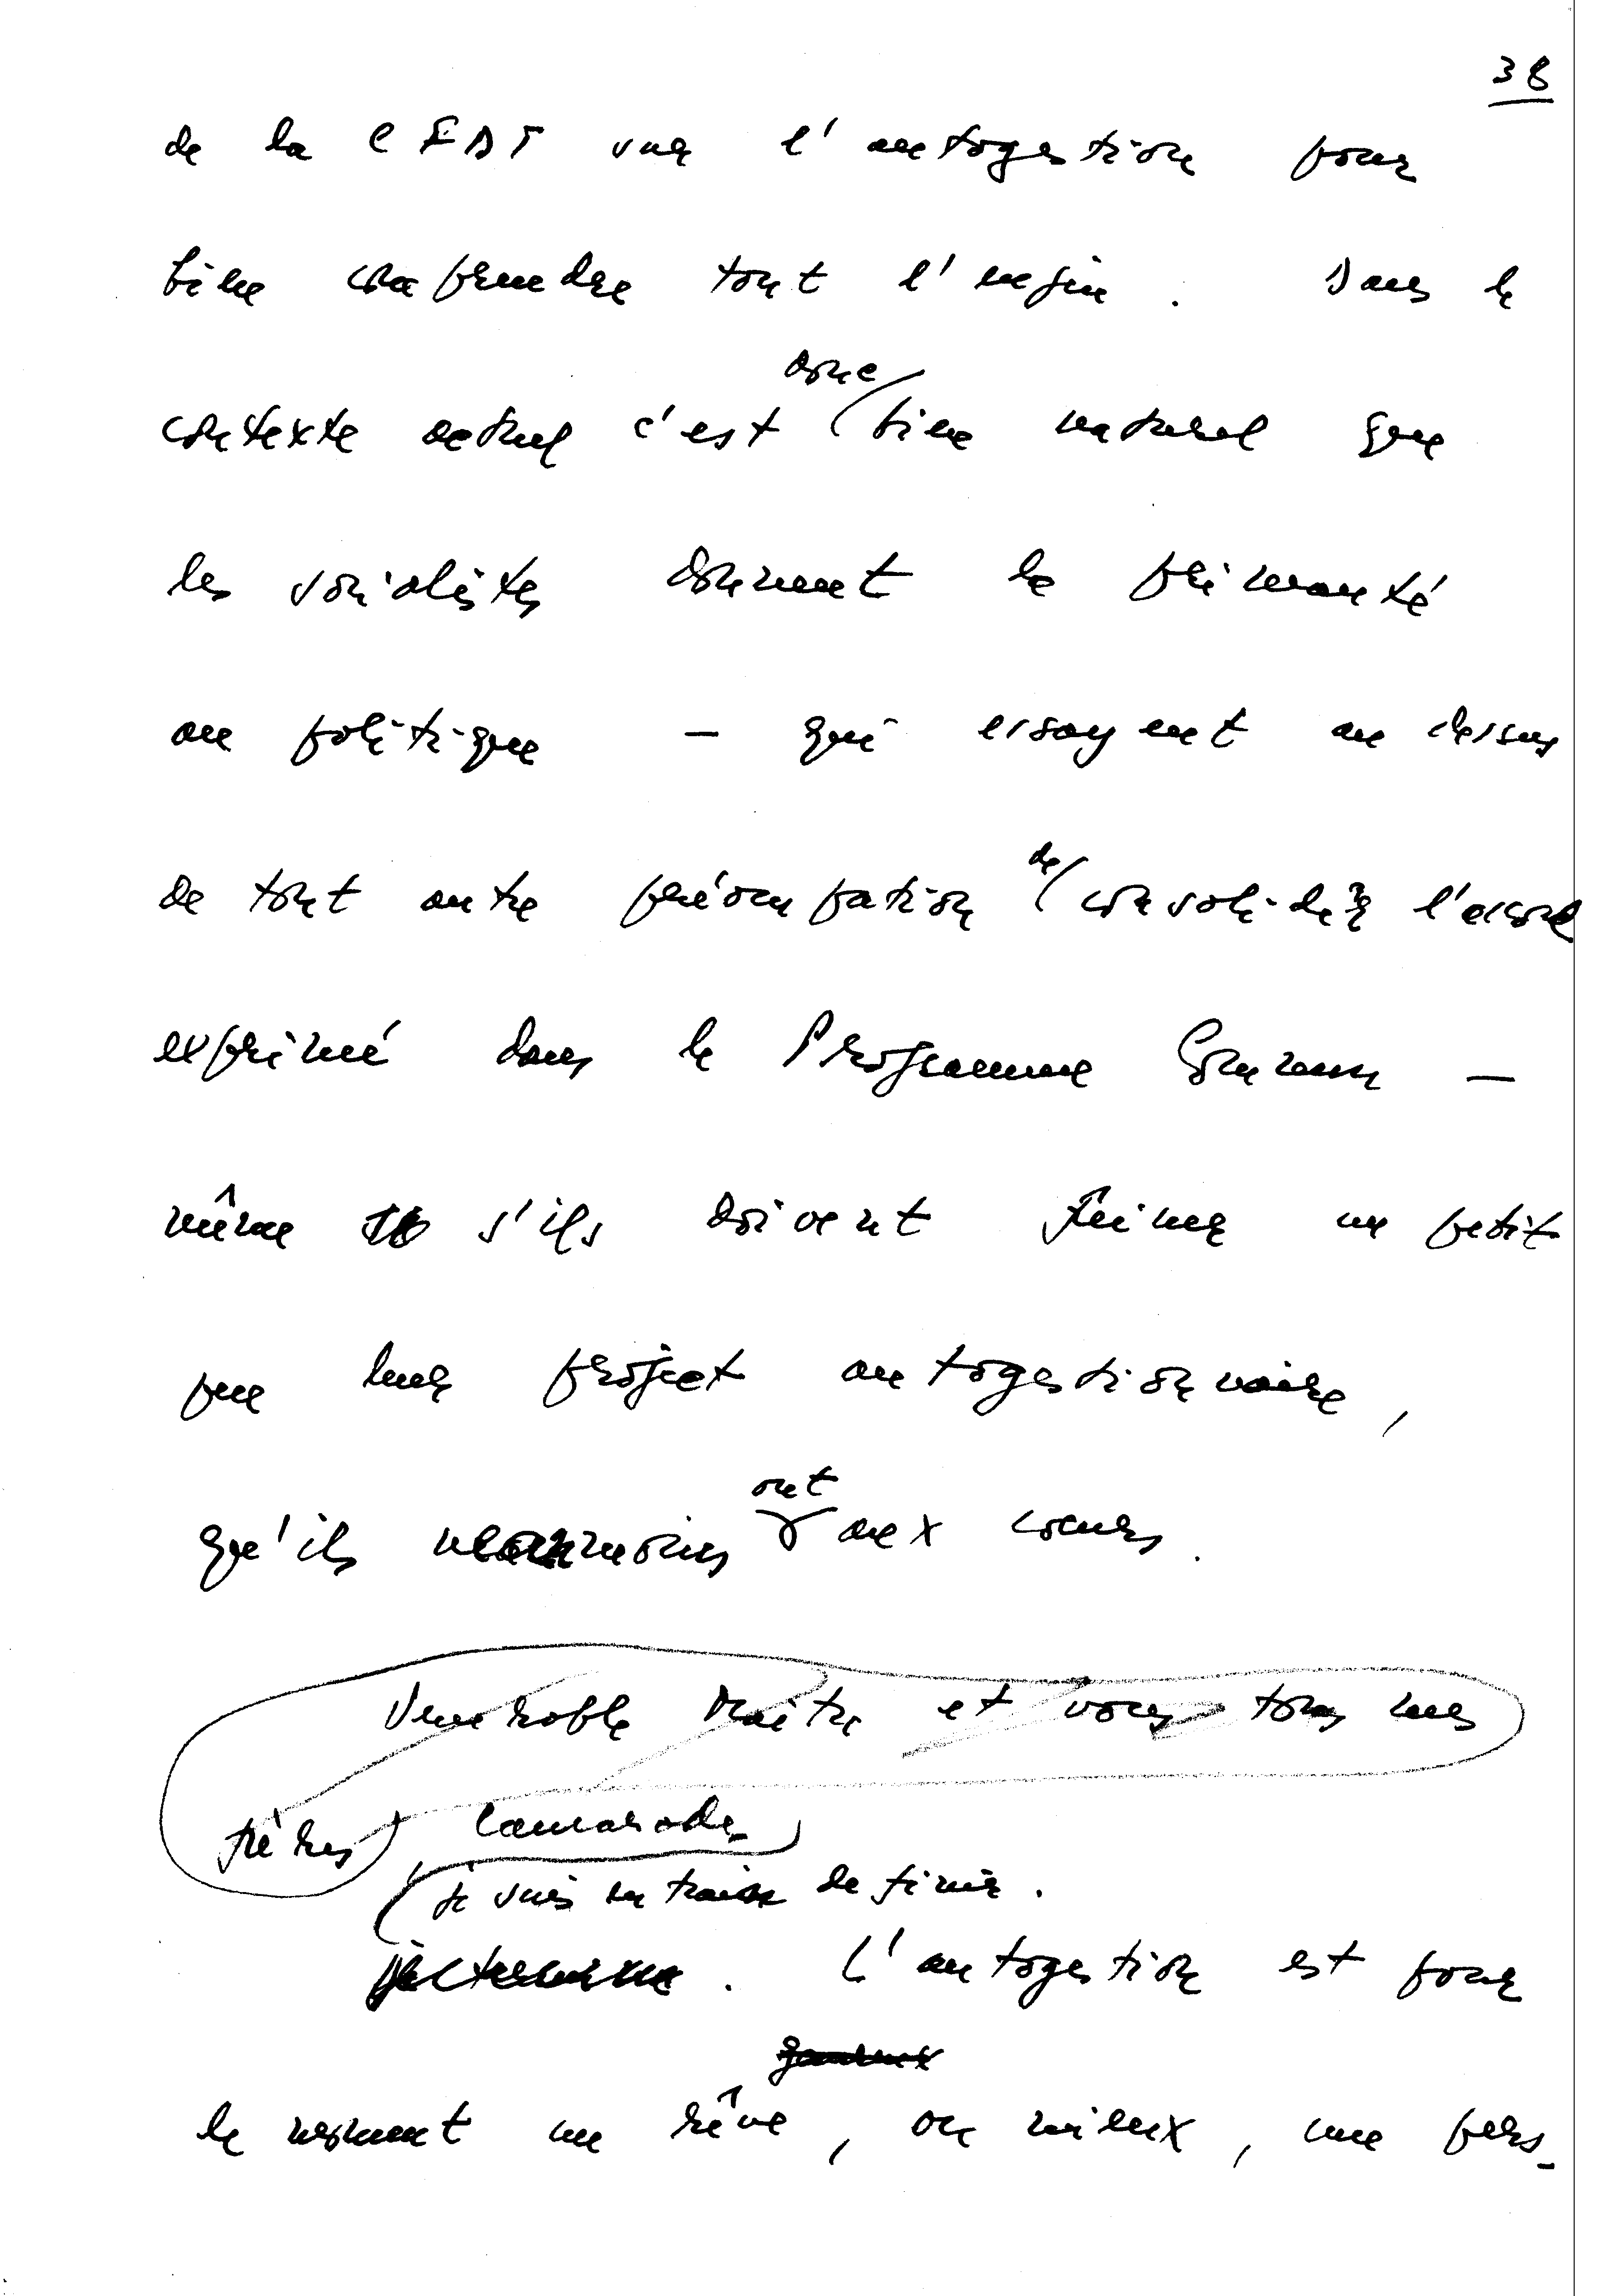 38
de la CFDT sur l'autogestion pour
bien comprendre tout l'enjeu. Dans le
donc
contexte actuel c'est bien naturel que
les socialistes donnent la primauté
au politique — qui essayent au dessus
de
de tout autre préoccupation consolider l'accord
exprimé dans le Programme Commun —
même s'ils doivent freiner un petit
peu leur project autogestionnaire,
ont
qu'ils néanmoins aux coeurs.
Venerable Maître et vous tous mes
frères Camarades
je suis en train de finir.
je termine. L'autogestion est pour
le moment un rêve, ou mieux, une pers-